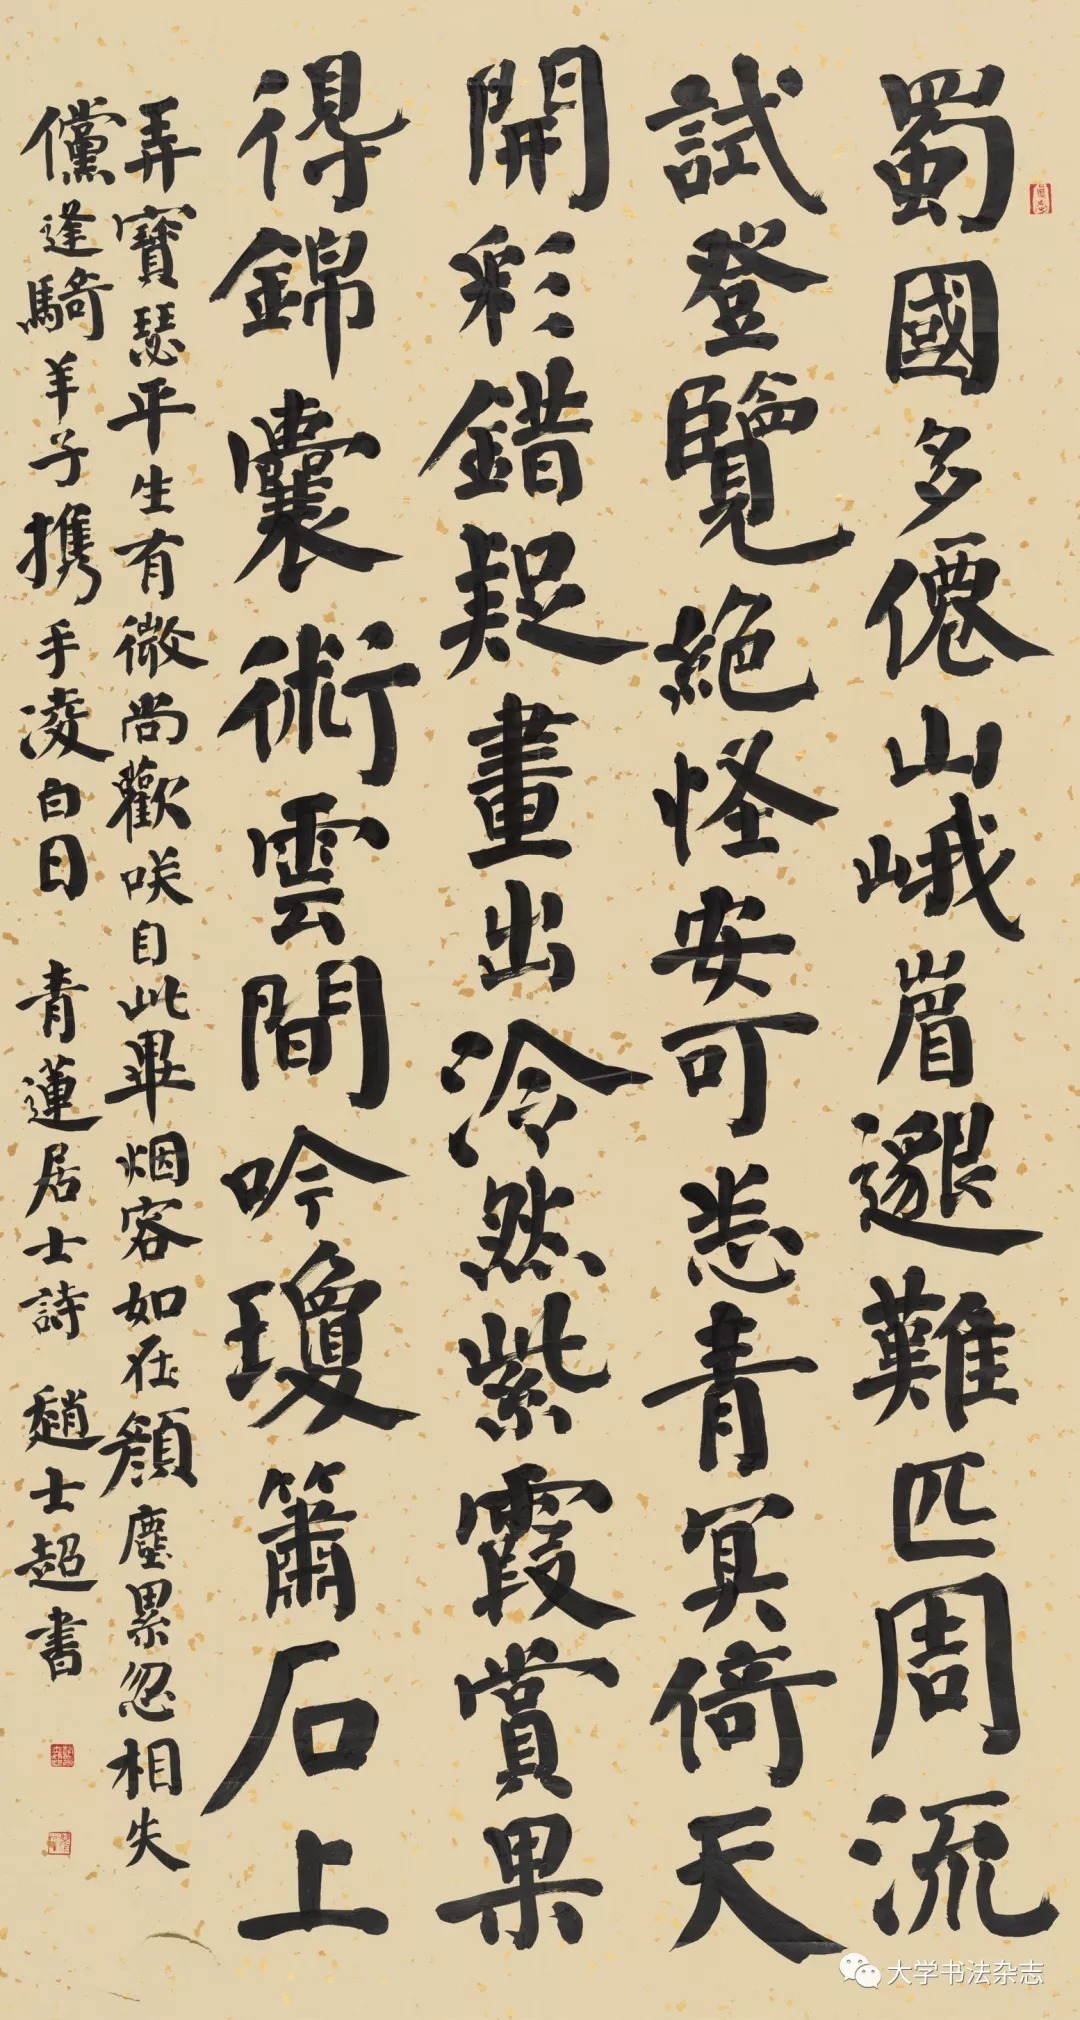 蜀國多僊山峨眉邈難匹周流
試登覽絕怪安可悉青冥倚天
開彩錯疑畫出泠然紫霞賞果
得錦囊術雲間吟瓊簫石上
弄寶瑟平生有微尚歡咲自此畢烟容如在顏塵累忽相失
儻逢騎羊子携手凌白日 青蓮居士詩 趙士超書
大学书法杂志